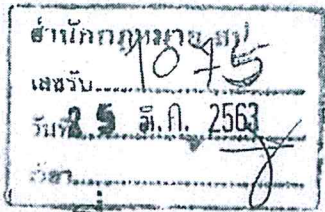 สำนักกฎหมาย สป
เลขรับ 1075
วันที่ 25 มี.ค. 2563
เวลา